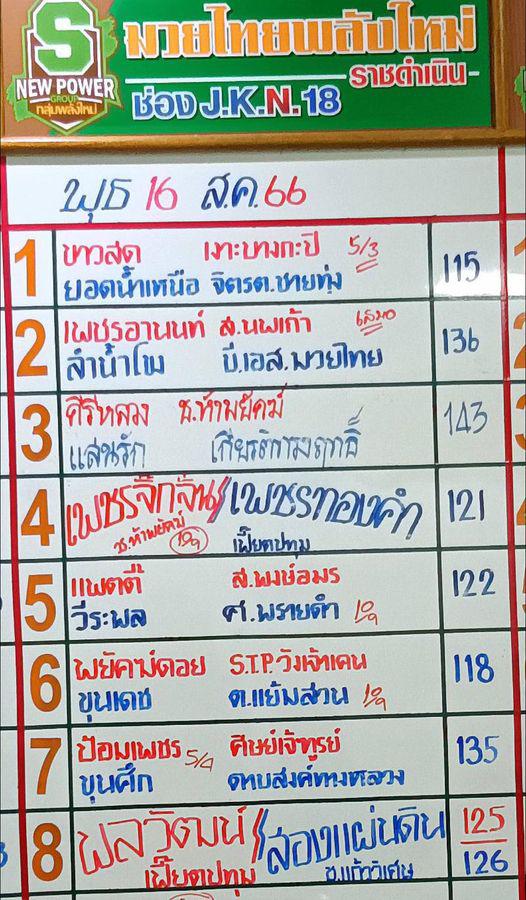 S
NEW POWER
GROUP
กลุ่มพลังใหม่
มวยไทยพลังใหม่
ราชดำเนิน
ช่อง J.K.N.18
พุธ 16 ส.ค.66
1 ขาวสด เงาะบางกะปิ 5/3 115
ยอดน้ำเหนือ จิตรต.ชายทุ่ง
2 เพชรอานนท์ ส.นพเก้า เสมอ 136
ลำน้ำโขง บี.เอส.มวยไทย
3 ศิริหลวง ช.ห้าพยัคฆ์ 143
แสนรัก
4 เพชรจีกจั่น // เพชรทองคำ 121
ช.ห้าพยัคฆ์ เฟี๊ยตปทุม
5 แพตตี้ ส.พงษ์อมร 122
วีระพล ศ.พรายดำ
6 พยัคฆ์ดอย S.T.P.วังเจ้าเคน 118
ขุนเดช ต.แย้มส่วน
7 ป้อมเพชร 5/4 ศิษย์เจ๊ทูรย์ 135
ขุนศึก ดาบสงค์ทางหลวง
8 พลวัฒน์ // สองแผ่นดิน 125
เฟี๊ยตปทุม ช.แก้ววิเศษ 126